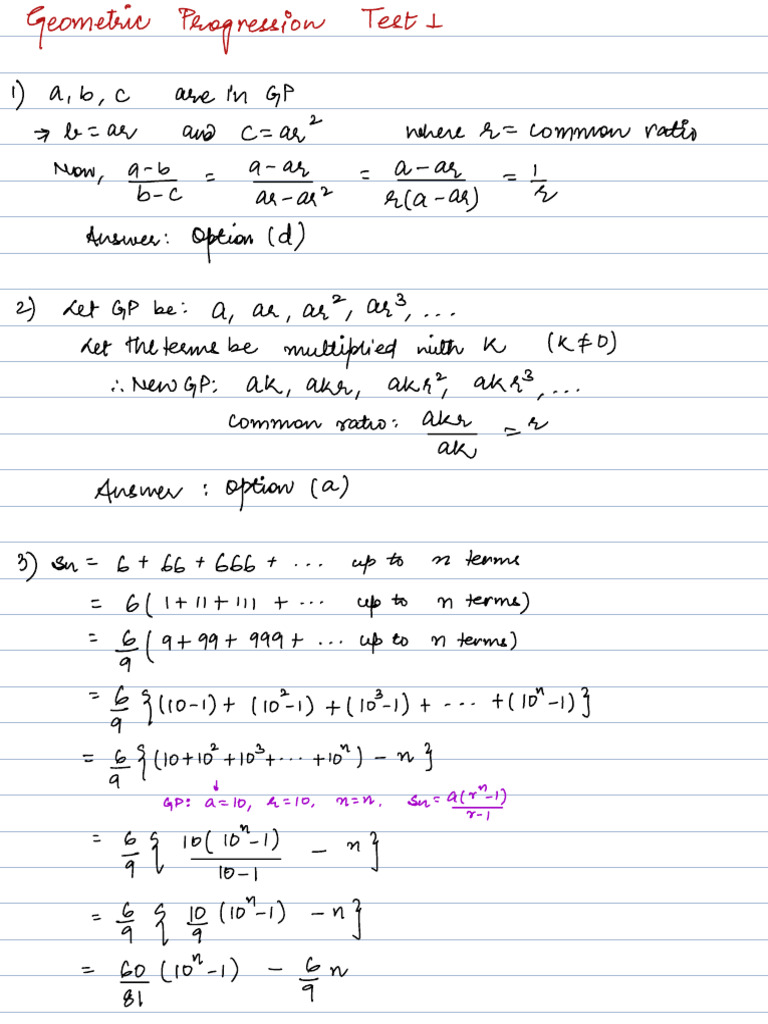 Geometric Progression Test 1
1) a, b, c are in GP
→ b = ar and c = ar² where r = common ratio
Now, (a-b)/(b-c) = (a-ar)/(ar-ar²) = (a-ar)/(r(a-ar)) = 1/r
Answer: Option (d)
2) Let GP be: a, ar, ar², ar³, ...
Let the terms be multiplied with K (K≠0)
∴ New GP: ak, akr, akr², akr³, ...
Common ratio: akr/ak = r
Answer : Option (a)
3) Sn = 6 + 66 + 666 + ... up to n terms
= 6(1+11+111 + ... up to n terms)
= 6/9 (9+99+999+ ... up to n terms)
= 6/9 {(10-1) + (10²-1) + (10³-1) + ... + (10ⁿ-1)}
= 6/9 {(10+10²+10³+...+10ⁿ) - n}
↓
GP: a=10, r=10, n=n, Sn = a(rⁿ-1)/(r-1)
= 6/9 { 10(10ⁿ-1)/(10-1) - n}
= 6/9 { 10/9 (10ⁿ-1) - n}
= 60/81 (10ⁿ-1) - 6/9 n